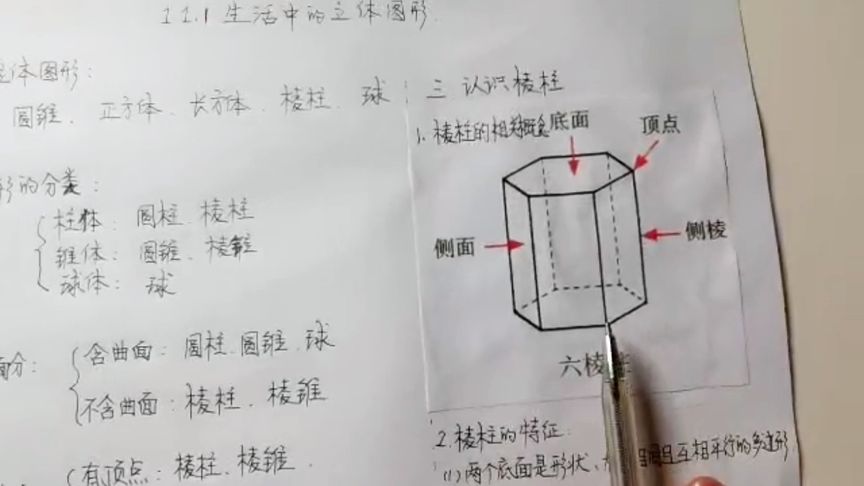 1 1.1 生活中的立体图形.
体图形:
圆锥、正方体、长方体、棱柱、球
形的分类:
柱体: 圆柱、棱柱
锥体: 圆锥、棱锥
球体: 球
面分:
含曲面: 圆柱、圆锥、球
不含曲面: 棱柱、棱锥
有顶点: 棱柱、棱锥.
三 认识棱柱
1. 棱柱的相关概念
底面
顶点
侧面
侧棱
六棱
2. 棱柱的特征:
(1) 两个底面是形状、 相同且互相平行的多边形